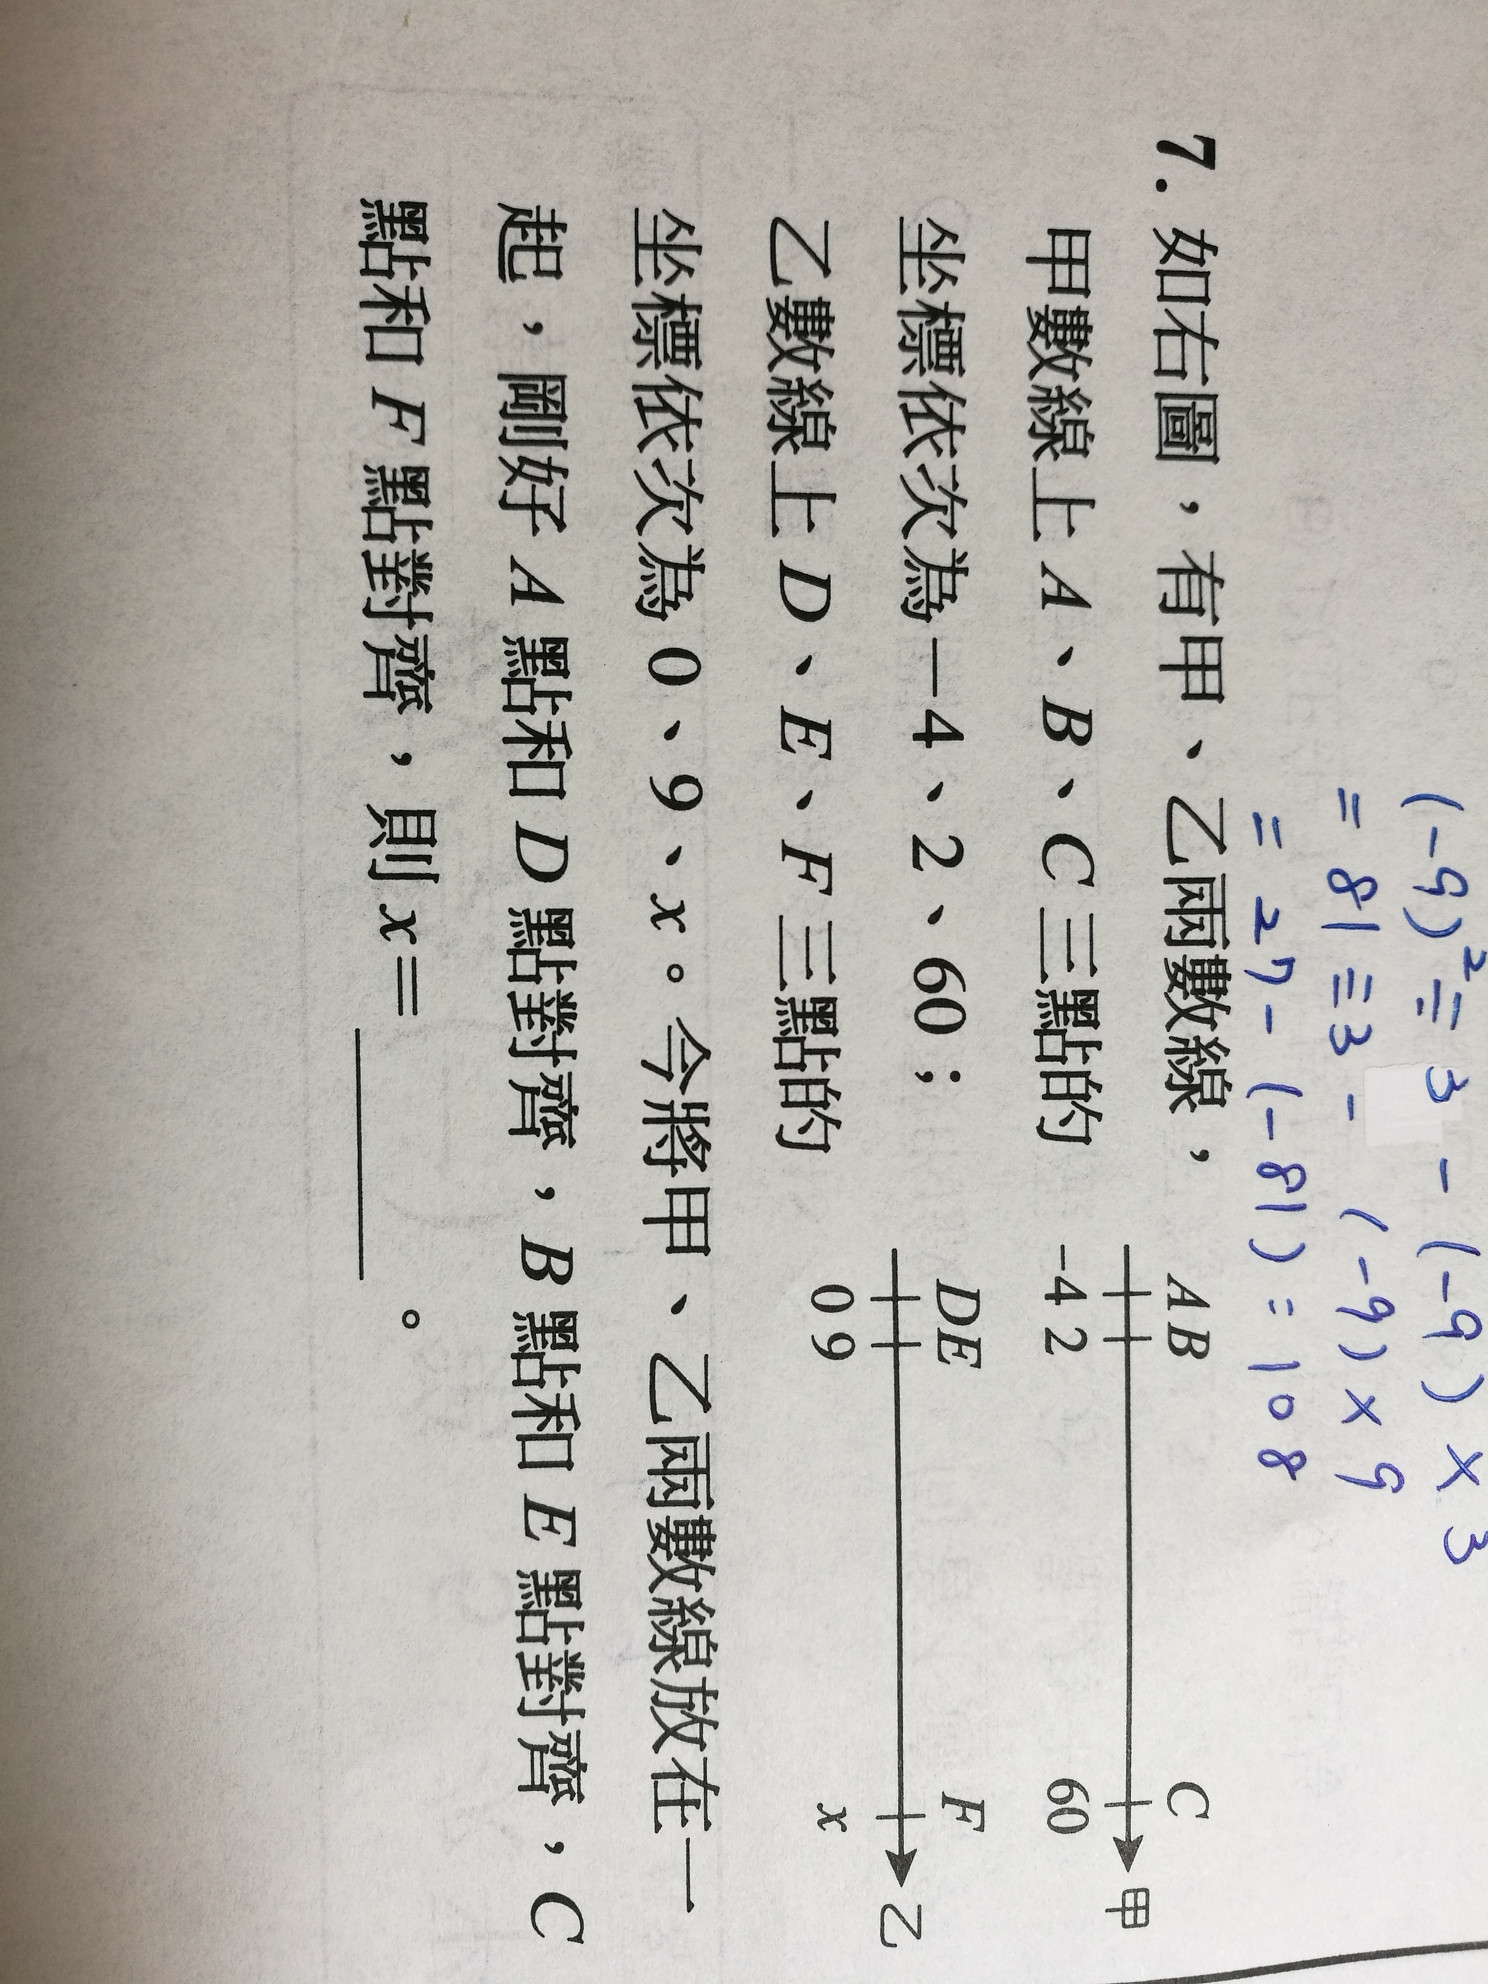 (-9)² ÷ 3 - (-9) × 3
= 81 ÷ 3 - (-9) × 9
= 27 - (-81) = 108
7. 如右圖，有甲、乙兩數線，
甲數線上 A、B、C 三點的
坐標依次為－4、2、60；
乙數線上 D、E、F 三點的
坐標依次為 0、9、x。今將甲、乙兩數線放在一
起，剛好 A 點和 D 點對齊，B 點和 E 點對齊，C
點和 F 點對齊，則 x＝＿＿＿＿。
A B C
-4 2 60 甲
D E F
0 9 x 乙